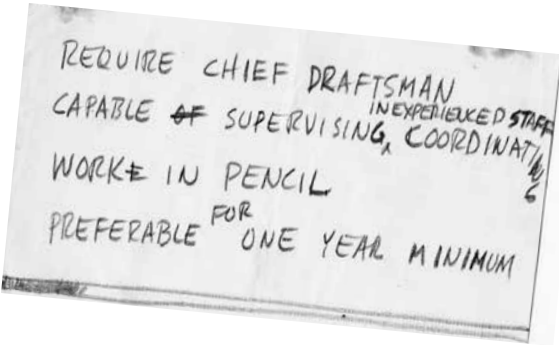 REQUIRE CHIEF DRAFTSMAN
CAPABLE OF SUPERVISING, INEXPERIENCED STAFF COORDINATING
WORK IN PENCIL
PREFERABLE FOR ONE YEAR MINIMUM